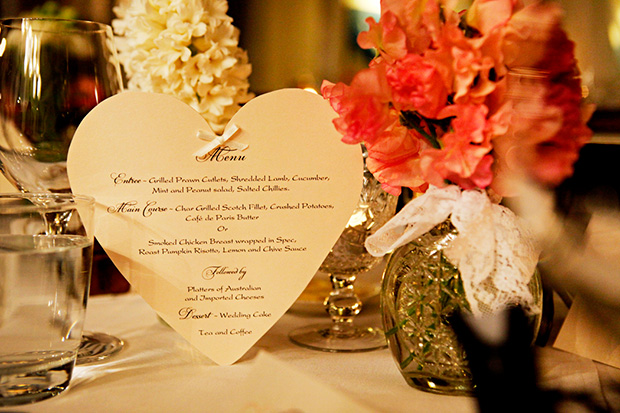 Menu
Entree - Grilled Prawn Cutlets, Shredded Lamb, Cucumber,
Mint and Peanut salad, Salted Chillies.
Main Course - Char Grilled Scotch Fillet, Crushed Potatoes,
Café de Paris Butter
Or
Smoked Chicken Breast wrapped in Spec,
Roast Pumpkin Risotto, Lemon and Chive Sauce
Followed by
Platters of Australian
and Imported Cheeses
Dessert - Wedding Cake
Tea and Coffee